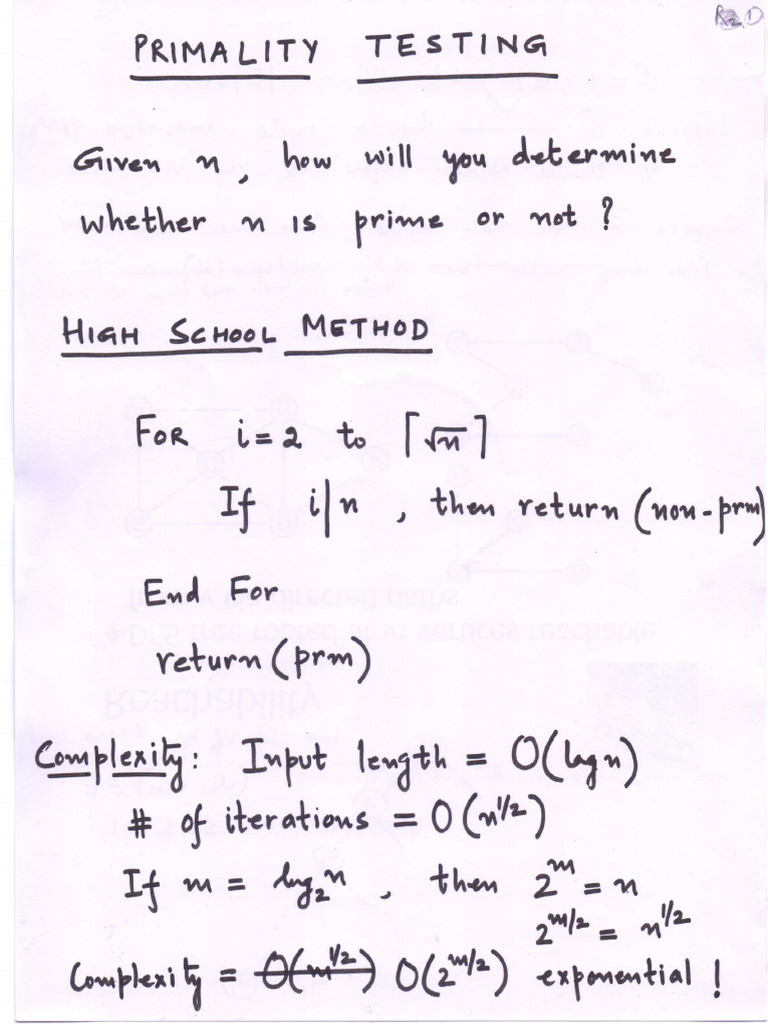 PRIMALITY TESTING
Given n, how will you determine
whether n is prime or not?
HIGH SCHOOL METHOD
FOR i=2 to ⌈√n⌉
If i|n, then return (non-prm)
End For
return (prm)
Complexity: Input length = O(log n)
# of iterations = O(n^1/2)
If m = log₂n, then 2^m = n
2^m/2 = n^1/2
Complexity = ~~O(m^1/2)~~ O(2^m/2) exponential!